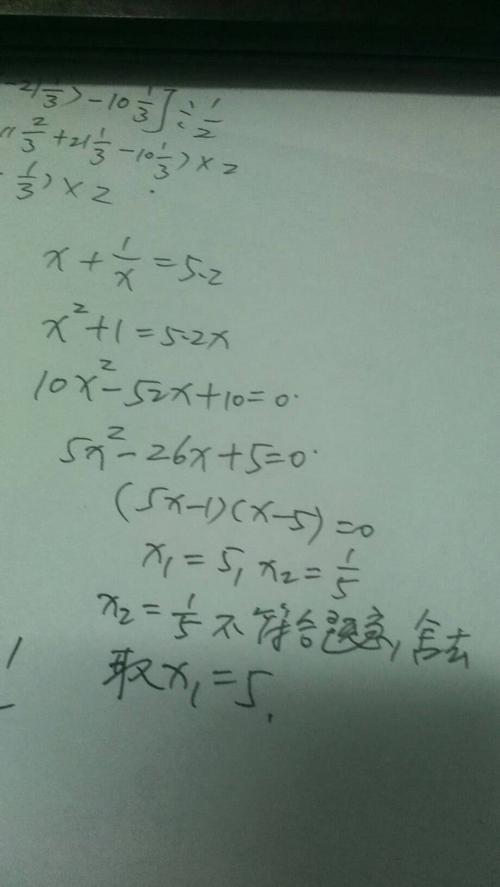 -21 1/3) - 10 1/3] ÷ 1/2
2/3 + 21 1/3 - 10 1/3) × 2
1/3) × 2
x + 1/x = 5.2
x² + 1 = 5.2x
10x² - 52x + 10 = 0.
5x² - 26x + 5 = 0.
(5x-1)(x-5) = 0
x₁ = 5, x₂ = 1/5
x₂ = 1/5 不符合题意, 舍去
取 x₁ = 5.